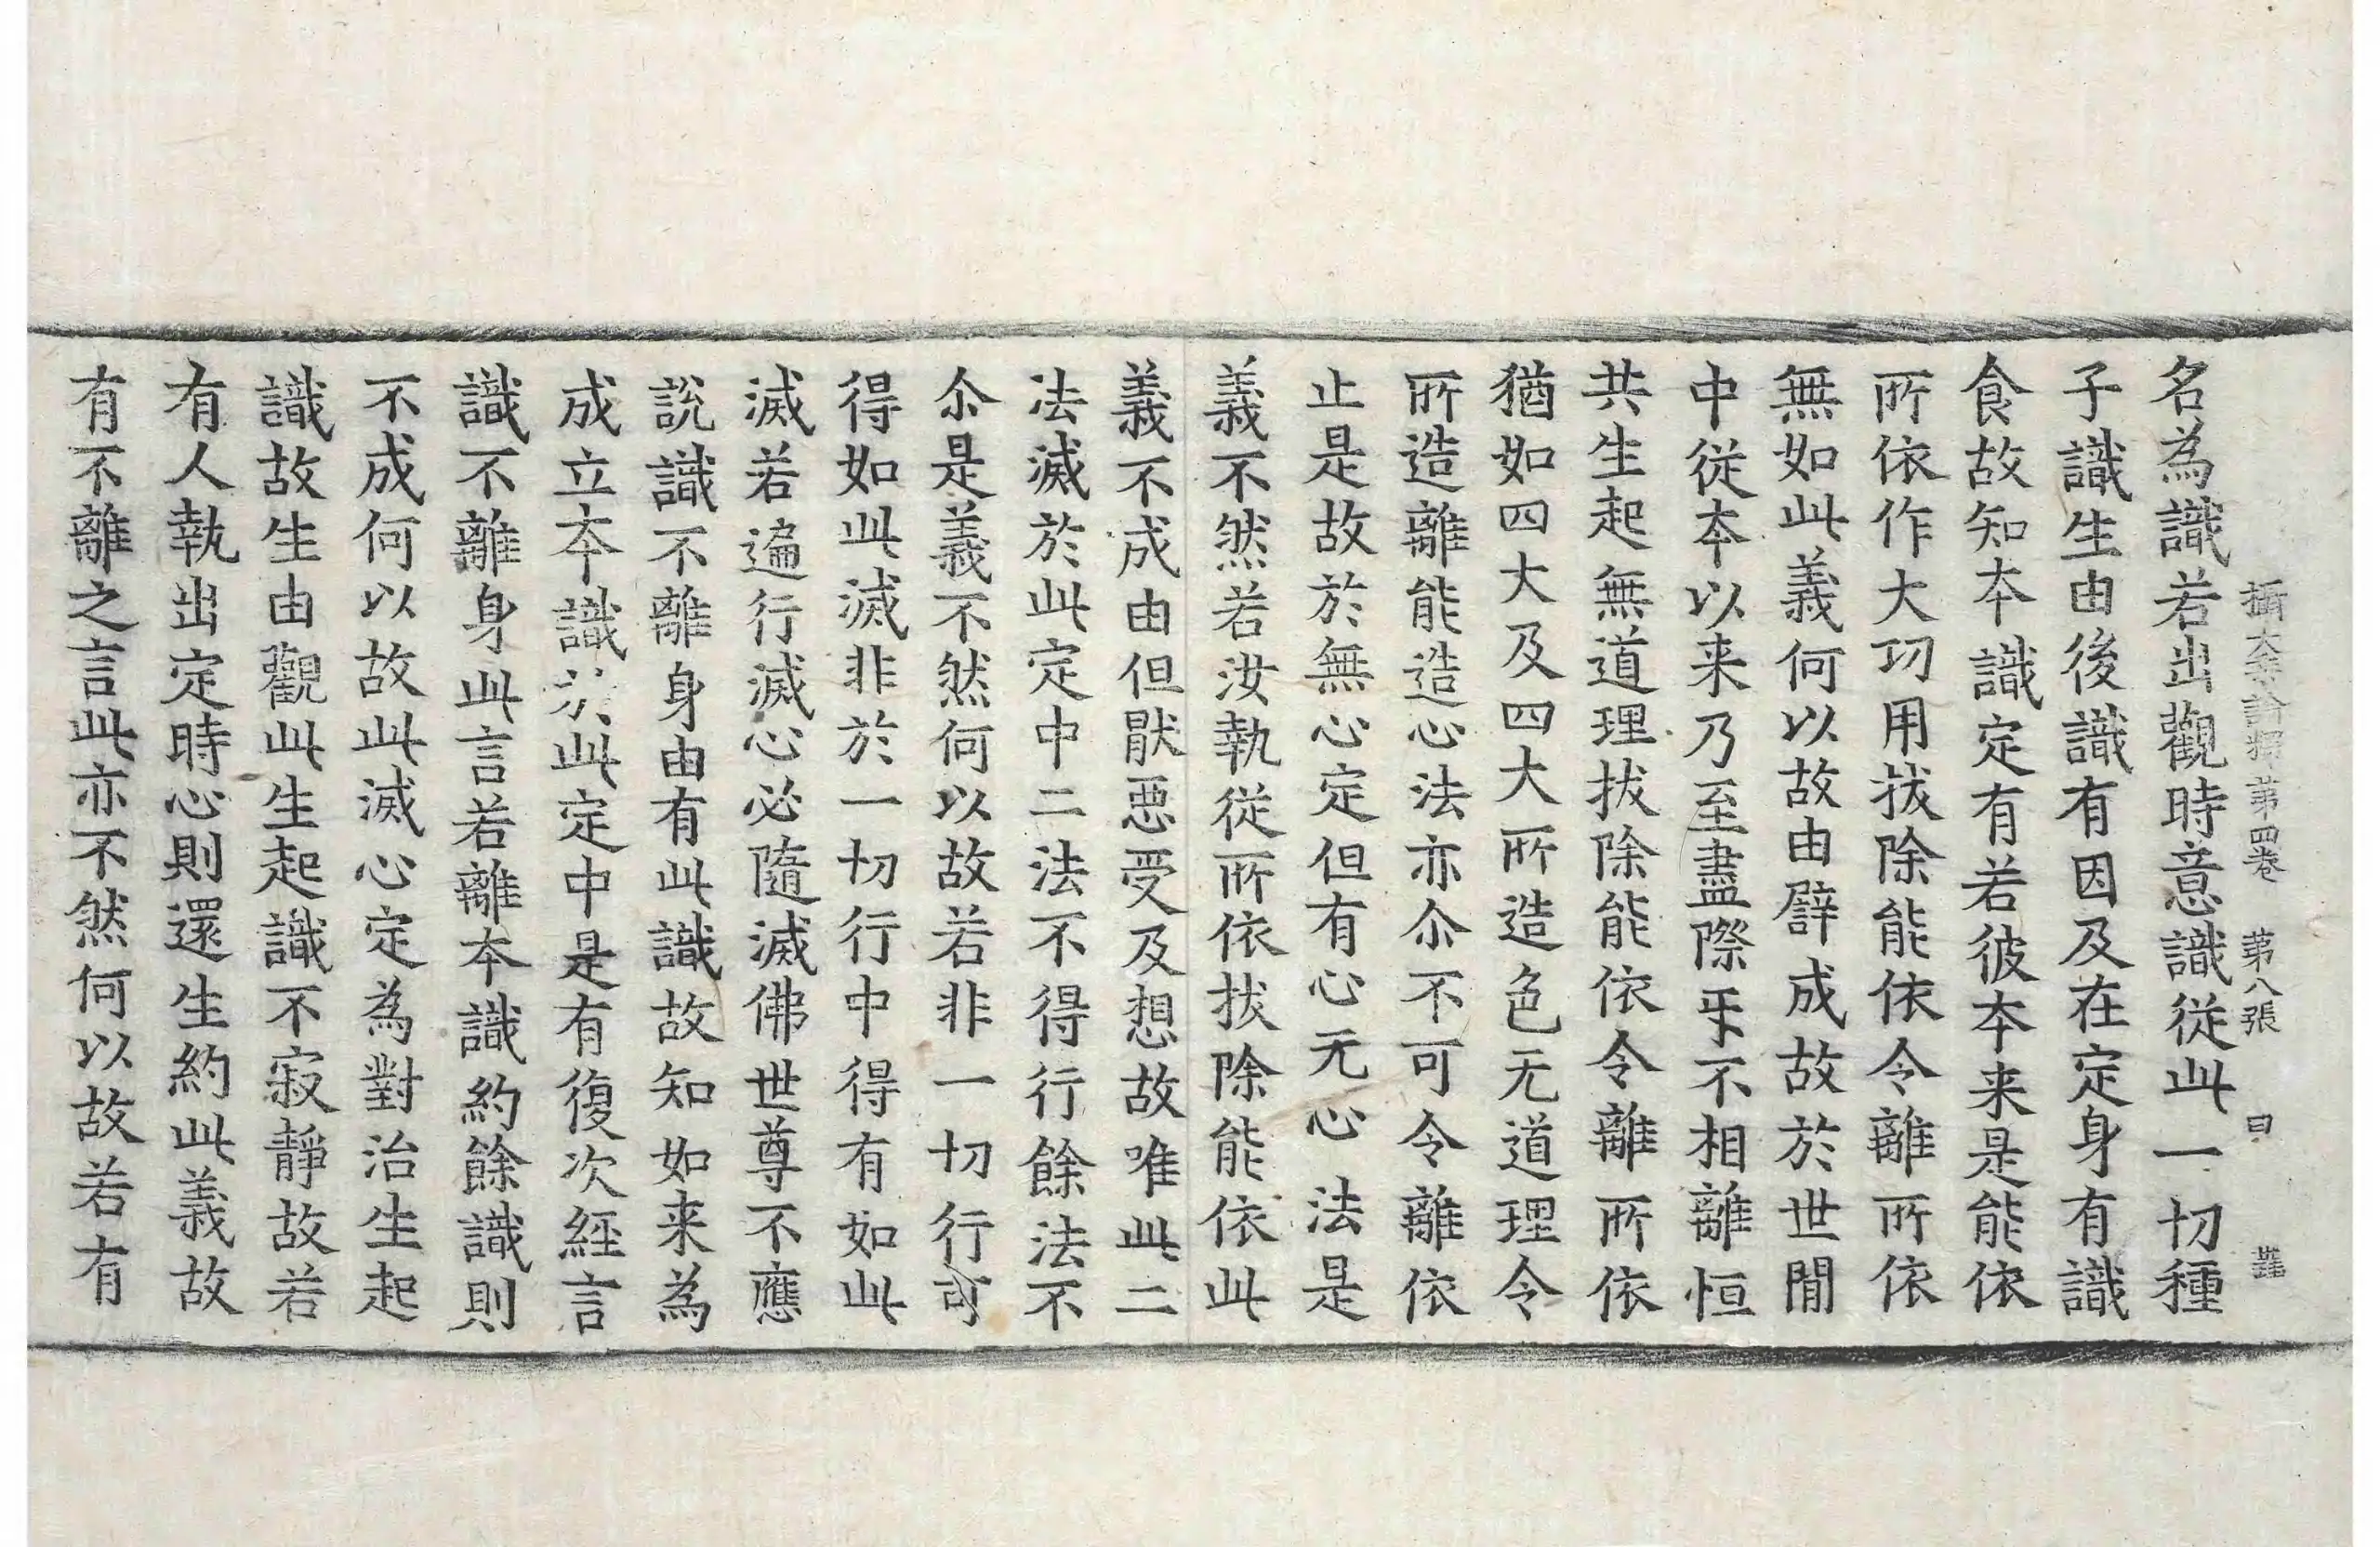 攝大乘論釋第四卷 第八張 曰
名為識若出觀時意識從此一切種
子識生由後識有因及在定身有識
食故知本識定有若彼本来是能依
所依作大功用拔除能依令離所依
無如此義何以故由譬成故於世間
中從本以来乃至盡際𤓰不相離恒
共生起無道理拔除能依令離所依
猶如四大及四大所造色无道理令
所造離能造心法亦尒不可令離依
止是故於無心定但有心无心法是
義不然若汝執從所依拔除能依此
義不成由但猒惡受及想故唯此二
法滅於此定中二法不得行餘法不
尒是義不然何以故若非一切行可
得如此滅非於一切行中得有如此
滅若遍行滅心必隨滅佛世尊不應
說識不離身由有此識故知如来為
成立本識於此定中是有復次經言
識不離身此言若離本識約餘識則
不成何以故此滅心定為對治生起
識故生由觀此生起識不寂靜故若
有人執出定時心則還生約此義故
有不離之言此亦不然何以故若有